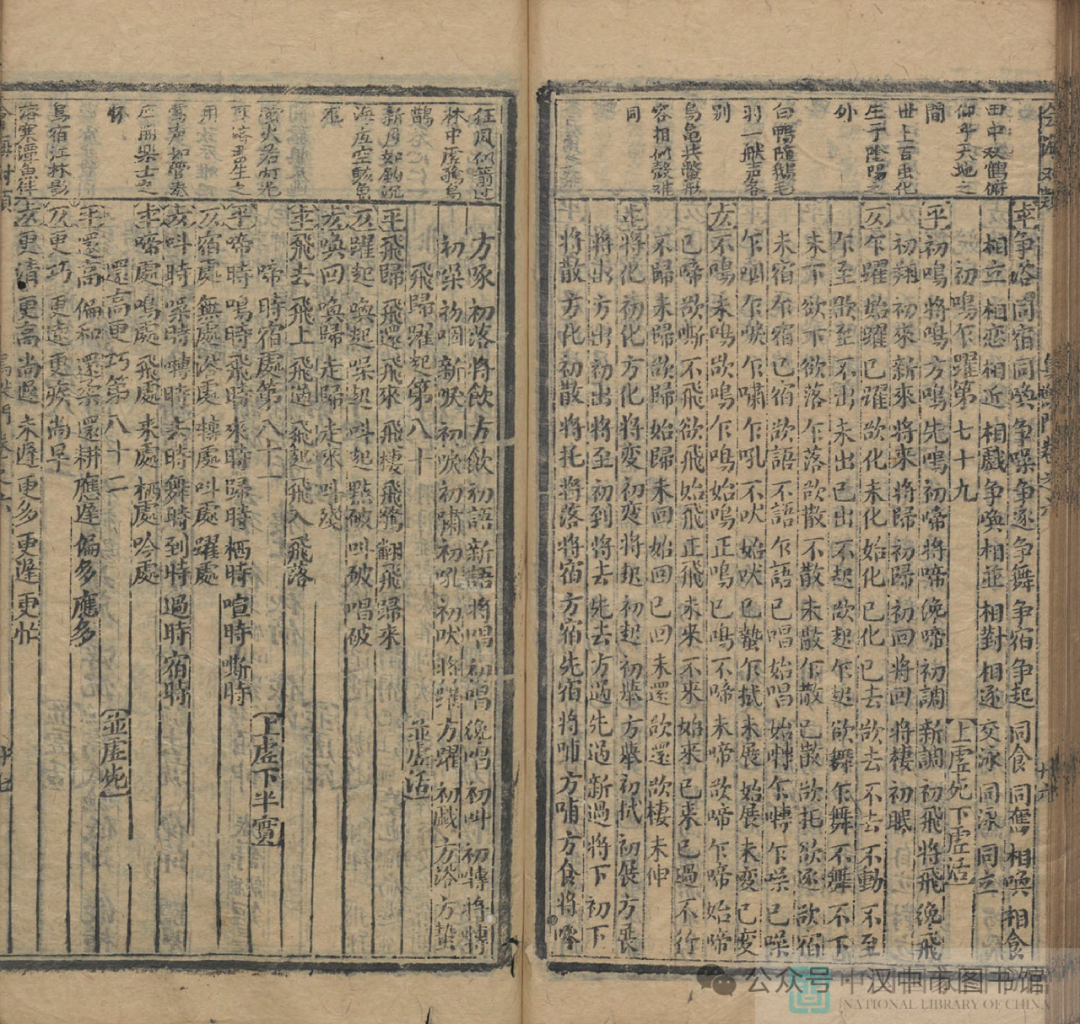 田中双鶴俯
仰乎天地之
間
世上百虫化
生于陰陽之
外
白鴨隨鵝毛
羽一般声各
別
烏龜共鱉形
容相似殼难
同
争啄同宿同喚争噪争逐争舞争宿争起同食同奮相喚相食
相立相恋相近相戲争喚相並相對相逐交泳同泳同立
初鳴乍躍第七十九
上虛死下虛活
平初鳴將鳴方鳴先鳴初啼將啼俛啼初調新調初飛將飛纔飛
初翔初來新來將來將歸初歸初回將回將棲初眠
仄乍躍始躍已躍欲化未化始化已化已去欲去不去不動不至
乍至欲至不出未出已出不起欲起乍起欲舞乍舞不舞不下
未下欲下欲落乍落欲散不散未散乍散已散欲托欲逐欲宿
未宿乍宿已宿欲語不語乍語已唱始唱始轉乍轉乍噪已噪
乍咽乍唳乍嘯乍吼不吠始吠已蟄乍拭未展始展未变已变
不鳴未鳴欲鳴乍鳴始鳴正鳴已鳴不啼未啼欲啼乍啼始啼
已啼欲嘶不飛欲飛始飛正飛未來不來始來已來已過不行
不歸未歸欲歸始歸未回始回已回未還欲還欲棲未伸
將化初化方化將变初变將起初起初舉方舉初拭初展方展
將出方出初出將至初到將去先去方過先過新過將下初下
將散方化初散將托將落將宿方宿先宿將哺方哺方食將啄
狂風似箭过
林中虛駭鳥
鵲
新月如鈎沉
海底空駭魚
龍
螢火若灯光
可济君生之
用
鶯声如管奏
应丽樂士之
怀
鳥宿江林影
落寒潭魚伴
方啄初落將飲方飲初語新語將唱初唱纔唱初叫初轉將轉
初噪初咽新唳初唳初嘯初吼初吠將躍方躍初戲方浴方蟄
飛歸躍起第八十
並虛活
平飛歸飛還飛來飛棲飛鶩翻飛歸來
仄躍起喚起噪起叫起點破叫破唱破
喚回喚歸走歸走來叫殘
飛去飛上飛過飛起飛入飛落
啼時宿處第八十一
上虛下半實
平啼時鳴時飛時來時歸時栖時喧時嘶時
仄宿處無處浴處棲處叫處躍處
叫時噪時轉時去時舞時到時過時宿時
啼處鳴處飛處來處栖處吟處
還高更巧第八十二
並虛死
平還高偏和還柔還耕應遲偏多應多
仄更巧更遠更疾尚早
更清更高尚遲未遲更多更遲更忙